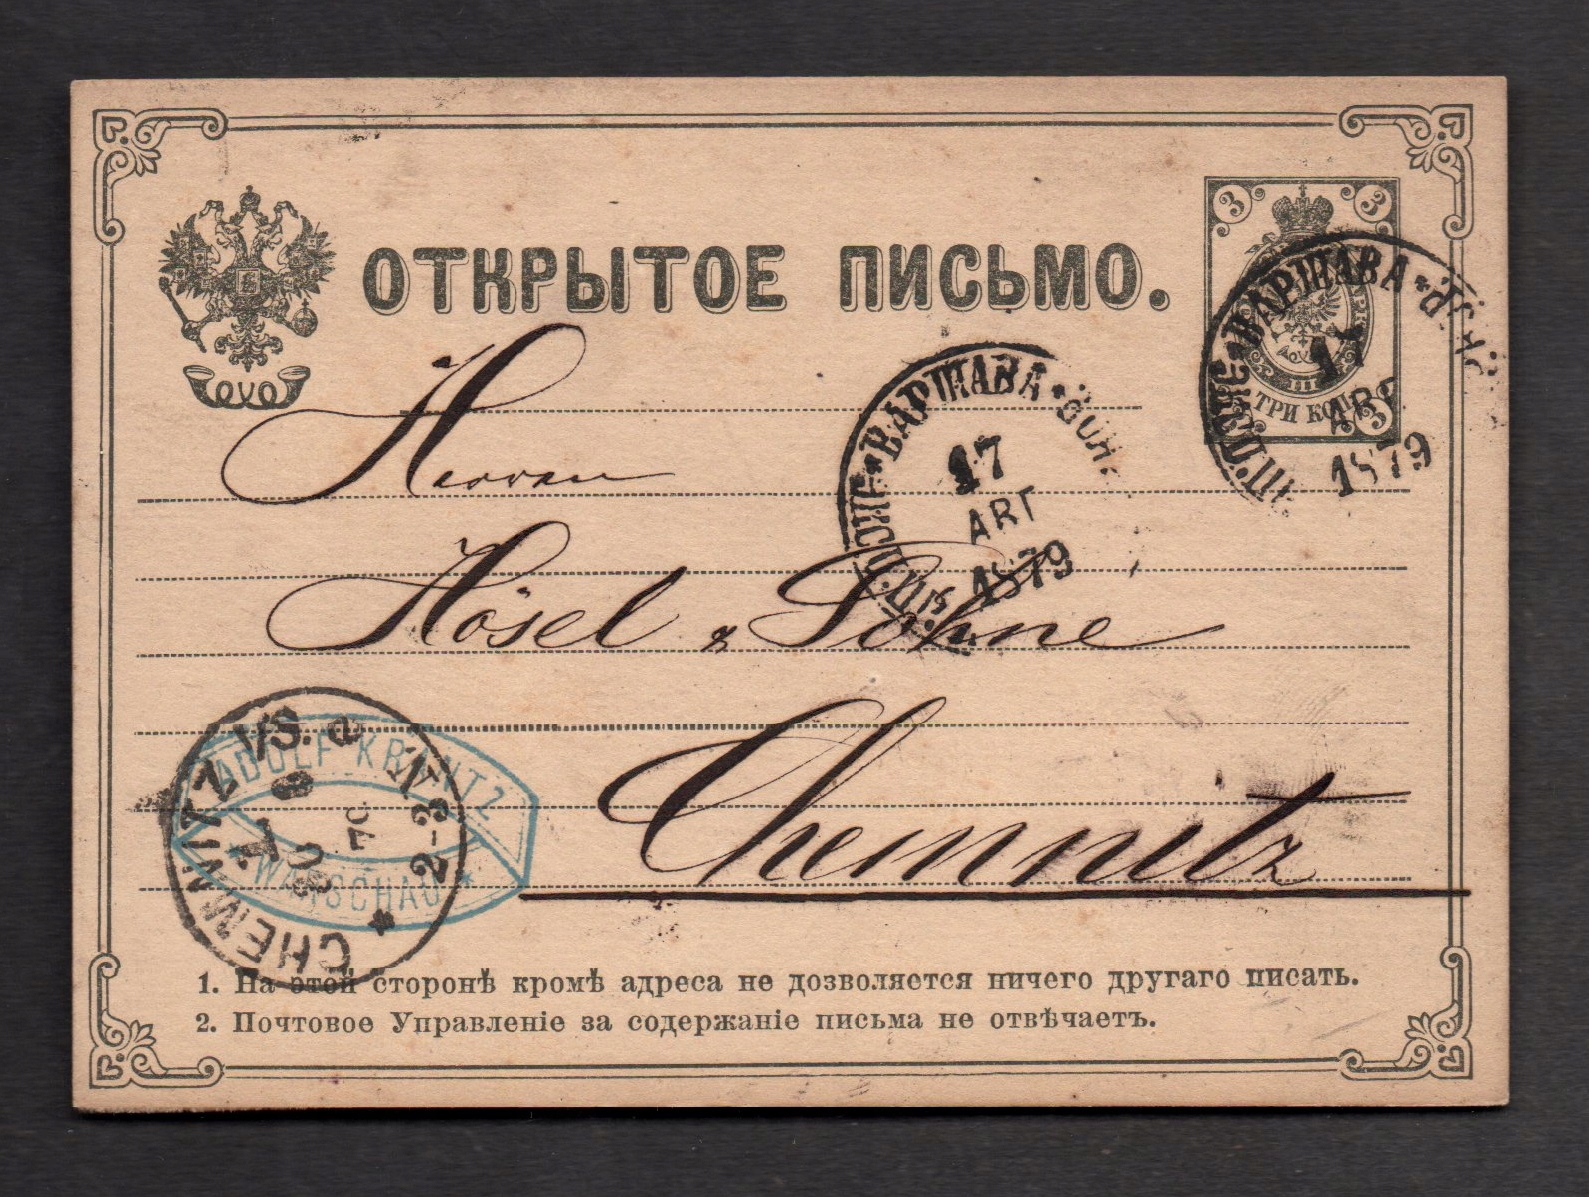 ОТКРЫТОЕ ПИСЬМО.
3 3
ТРИ КОП.
3
ВАРШАВА
17
АВГ
1879
Herren
ВАРШАВА
17
АВГ
1879
Hösel & Söhne
Chemnitz
ADOLF KRANTZ
WARSCHAU
CHEMNITZ VS. e
2-3 N
1. На этой сторонѣ кромѣ адреса не дозволяется ничего другаго писать.
2. Почтовое Управленіе за содержаніе письма не отвѣчаетъ.